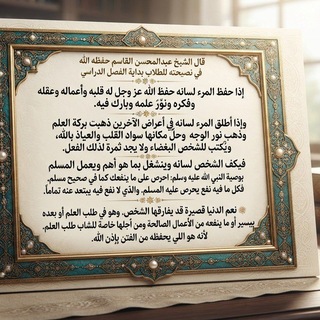 قال الشيخ عبدالمحسن القاسم حفظه الله
في نصيحته للطلاب بداية الفصل الدراسي
إذا حفظ المرء لسانه حفظ الله عز وجل له قلبه وأعماله وعقله
وفكره ونوّر علمه وبارك فيه.
وإذا أطلق المرء لسانه في أعراض الآخرين ذهبت بركة العلم
وذهب نور الوجه وحل مكانها سواد القلب والعياذ بالله،
ويُكتب للشخص البغضاء ولا يجد ثمرة لذلك الفعل.
فيكف الشخص لسانه وينشغل بما هو أهم ويعمل المسلم
بوصية النبي الله عليه وسلم: احرص على ما ينفعك كما في صحيح مسلم.
فكل ما فيه نفع يحرص عليه المسلم. والذي لا نفع فيه يبتعد عنه تماماً.
نعم الدنيا قصيرة قد يفارقها الشخص، وهو في طلب العلم أو بعده
بيسير أو ما ينفعه من الأعمال الصالحة ومن أجلها خاصة للشاب طلب العلم.
لأنه هو اللي يحفظه من الفتن بإذن الله.